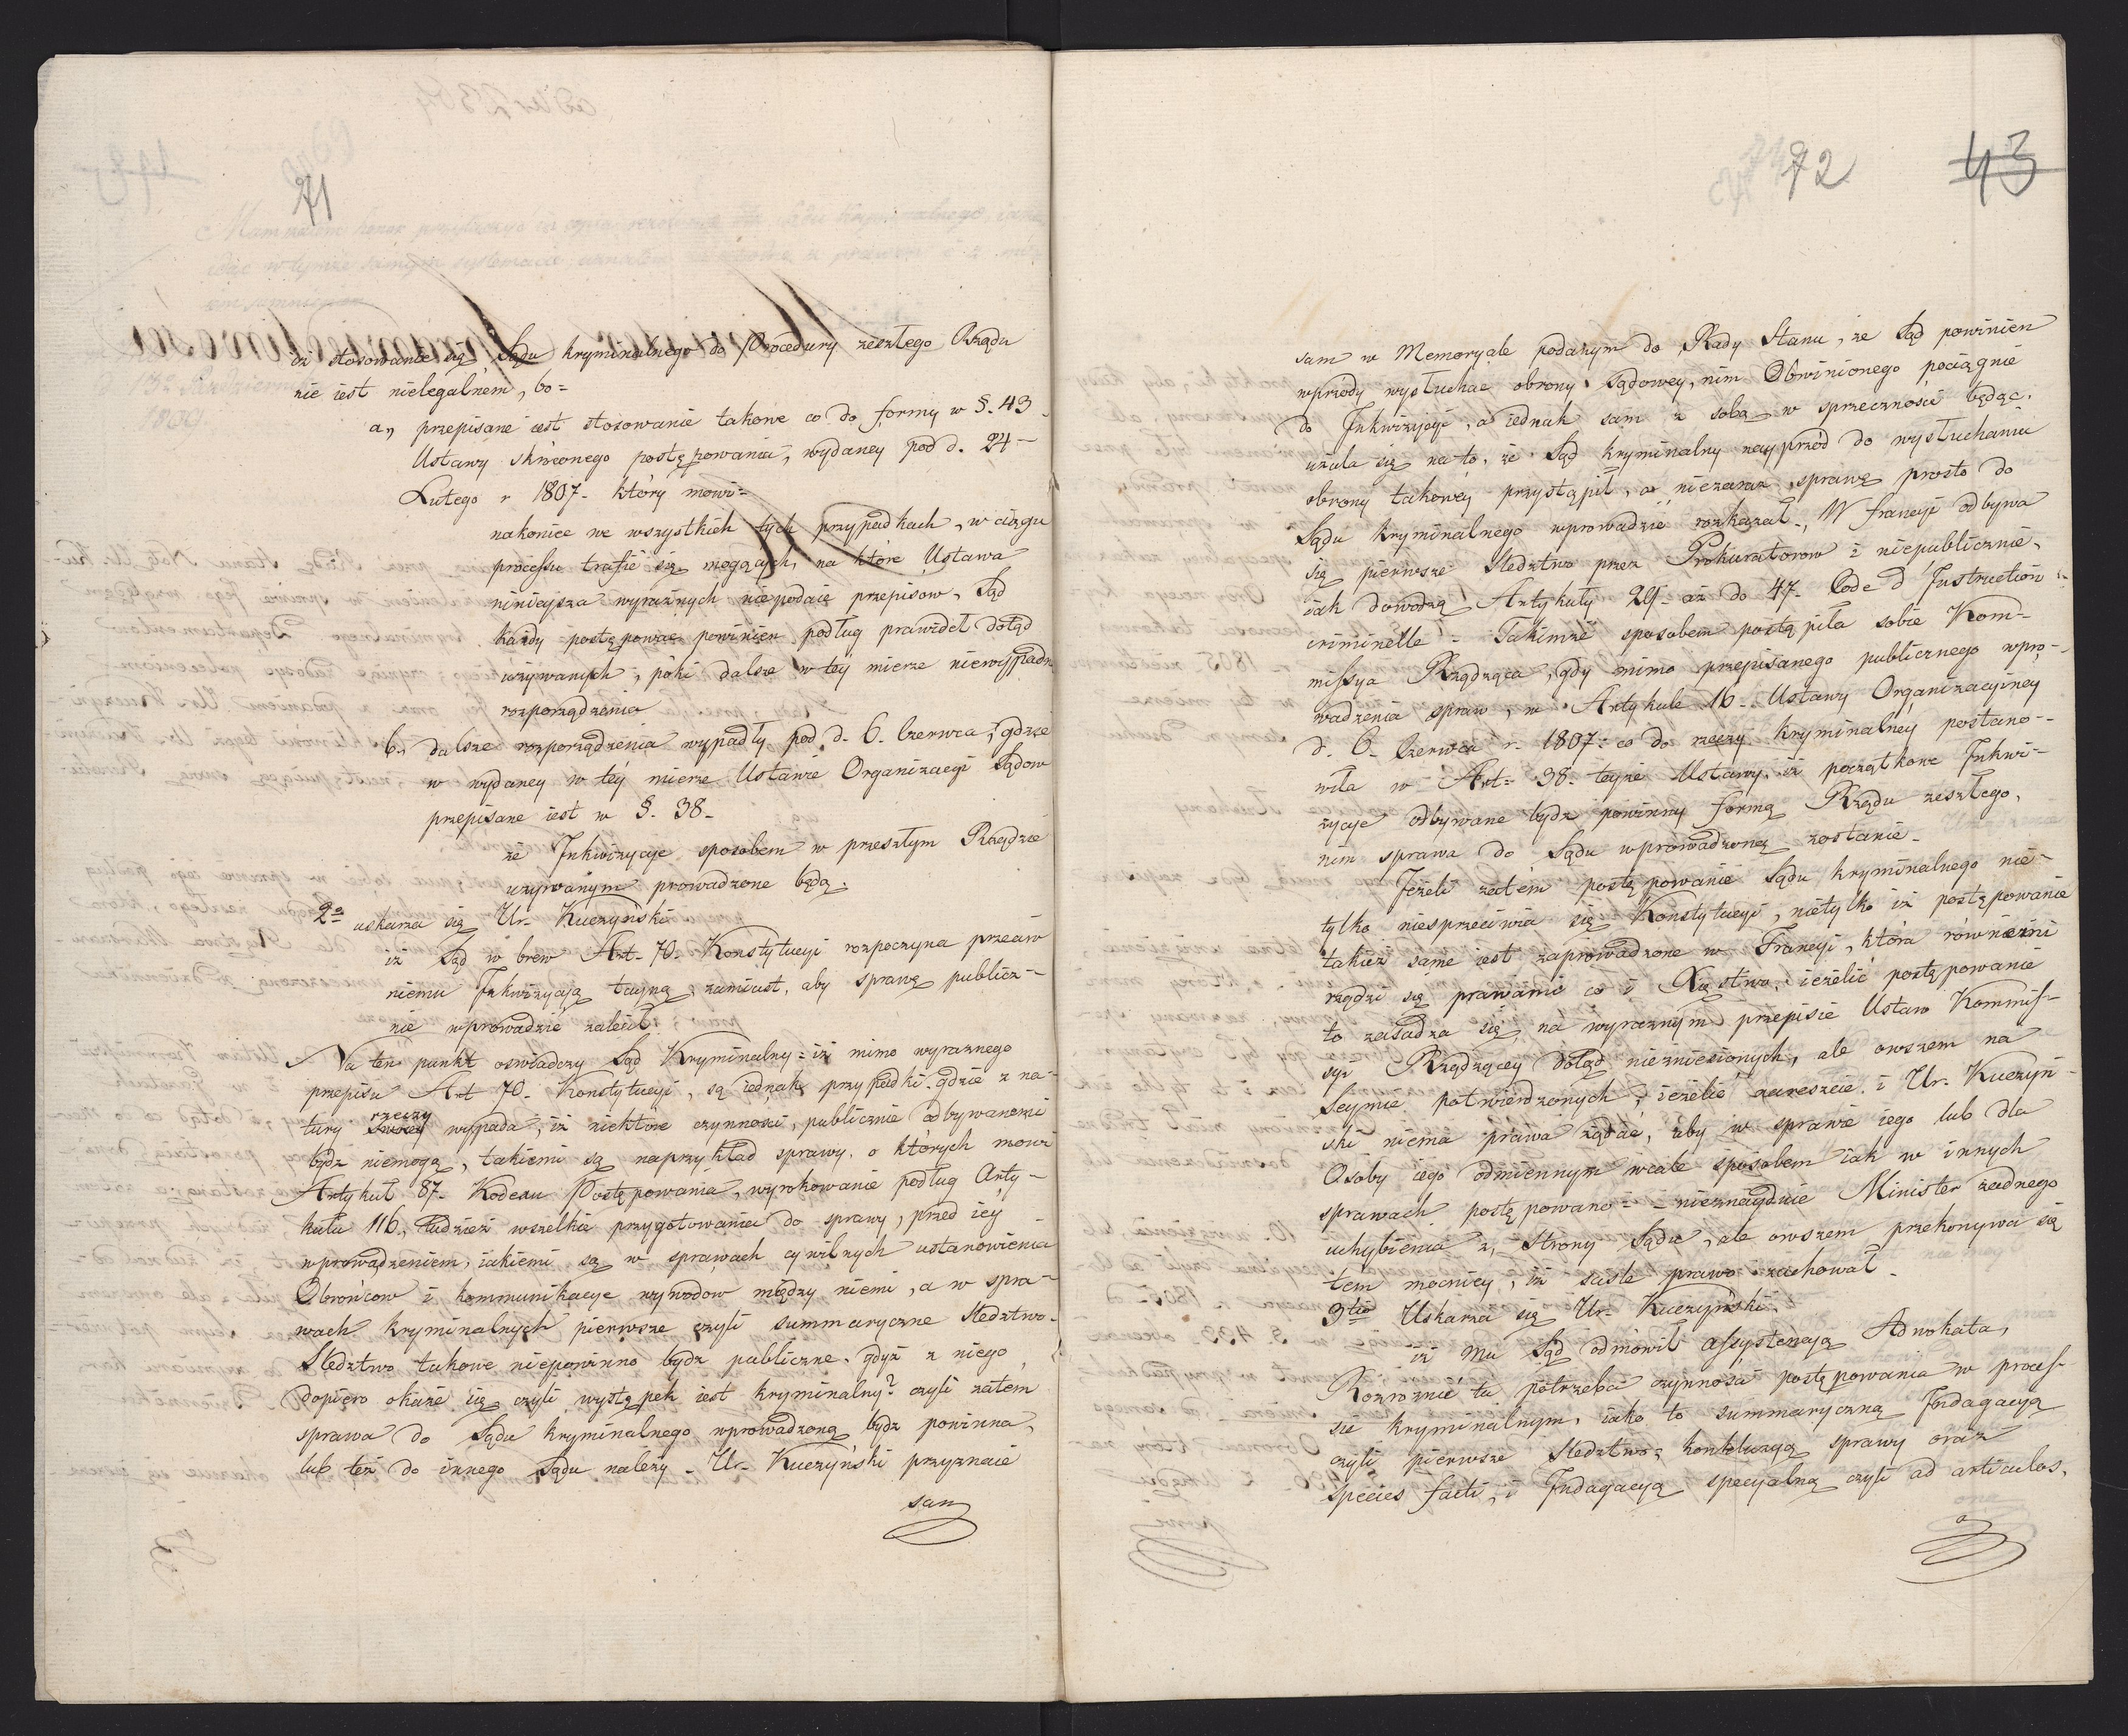 71
iż stosowanie się Sądu kryminalnego do Procedury zeszłego Rządu
nie iest nielegalném, bo=
a,, przepisane iest stosowanie takowe co do formy w §. 43
Ustawy skróconego postępowania, wydaney pod d. 24
Lutego r 1807. który mowi=
nakoniec we wszystkich tych przypadkach, w ciągu
processu trafić się mogących, na które Ustawa
ninieysza wyraźnych niepodaie przepisow, Sąd
każdy postępować powinien podług prawideł dotąd
używanych, póki dalsze w tey mierze niewypadną
rozporządzenia
b,, dalsze rozporządzenia wypadły pod d. 6. Czerwca, gdzie
w wydaney w téy mierze Ustawie Organizacyi Sądow
przepisane iest w §. 38.
że Inkwizycye sposobem w przeszłym Rządzie
używanym prowadzone będą.
2o uskarża się Ur. Kuczyński
iż Sąd w brew Art. 70. Konstytucyi rozpoczyna przeciw
niemu Inkwizycyą tayną, zamiast, aby sprawę publicz-
nie wprowadzić zalecił.
Na ten punkt oswiadczy Sąd Kryminalny= iż mimo wyraznego
przepisu Art 70. Konstytucyi, są iednak przypadki gdzie z na-
tury rzeczy wypada, iż niektóre czynności, publicznie odbywanemi
bydz niemogą, takiemi są naprzykład sprawy, o których mowi
Artykuł 87. Kodexu Postępowania, wyrokowanie podług Arty-
kułu 116, tudzież wszelkie przygotowania do sprawy, przed iéy
wprowadzeniem, iakiemi są w sprawach cywilnych ustanowienia
Obrońcow i kommunikacye wywodow między niemi, a w spra-
wach kryminalnych pierwsze czyli summaryczne sledztwo.
Sledztwo takowe niepowinno bydz publiczne, gdyż z niego
dopiero okaże się czyli występek iest kryminalny? czyli zatem
sprawa do Sądu kryminalnego wprowadzoną bydz powinna,
lub też do innego Sądu należy. Ur. Kuczyński przyznaie
sam
72 43
sam w Memoryale podanym do Rady Stanu, że Sąd powinien
wprzódy wysłuchać obrony Sądowey, nim Obwinionego pociągnie
do Inkwizycyi, a iednak sam z sobą w sprzeczności będąc,
użala się na to, że Sąd kryminalny nayprzód do wysłuchania
obrony takowéy przystąpił, a niezaraz sprawę prosto do
Sądu kryminalnego wprowadzić rozkazał. W francyi odbywa
się pierwsze sledztwo przez Prokuratorow i niepublicznie,
iak dowodzą Artykuły 29. aż do 47. Code d'Instruction
criminelle = Takimże sposobem postąpiła sobie Kom-
missya Rządząca, gdy mimo przepisanego publicznego wpro-
wadzenia spraw, w Artykule 16. Ustawy Organizacyiney
d. 6. Czerwca r. 1807: co do rzeczy kryminalnéy postano-
wiła w Art= 38. teyże Ustawy, iż początkowe Inkwi-
zycye odbywane bydz powinny formą Rządu zeszłego,
nim sprawa do Sądu wprowadzoną zostanie.
Jeżeli zatém postępowanie Sądu kryminalnego nie-
tylko niesprzeciwia się Konstytucyi, nietylko iż postępowanie
takież same iest zaprowadzone w Francyi, która równiemi
rządzi się prawami co i Xięstwo, ieżelić postępowanie
to zasadza się na wyraznym przepisie Ustaw Kommis-
syi Rządzącey dotąd niezniesionych, ale owszem na
Seymie potwierdzonych, ieżelić nareszcie i Ur. Kuczyń-
ski niema prawa żądać, aby w sprawie iego lub dla
Osoby iego odmiennym wcale sposobem iak w innych
sprawach postępowano= nieznayduie Minister żadnego
uchybienia z, strony Sądu, ale owszem przekonywa się
tem mocniey, iż ściśle prawo zachował.
3tio Uskarża się Ur. Kuczyński.
iż mu Sąd odmówił assystencyą Adwokata,
Rozróznić tu potrzeba czynność postępowania w proces-
sie kryminalnym, iako to summaryczną Indagacyą
czyli pierwsze sledztwo, konkluzyą sprawy oraz
species facti, i Indagacyą specyalną czyli ad articulos,
a